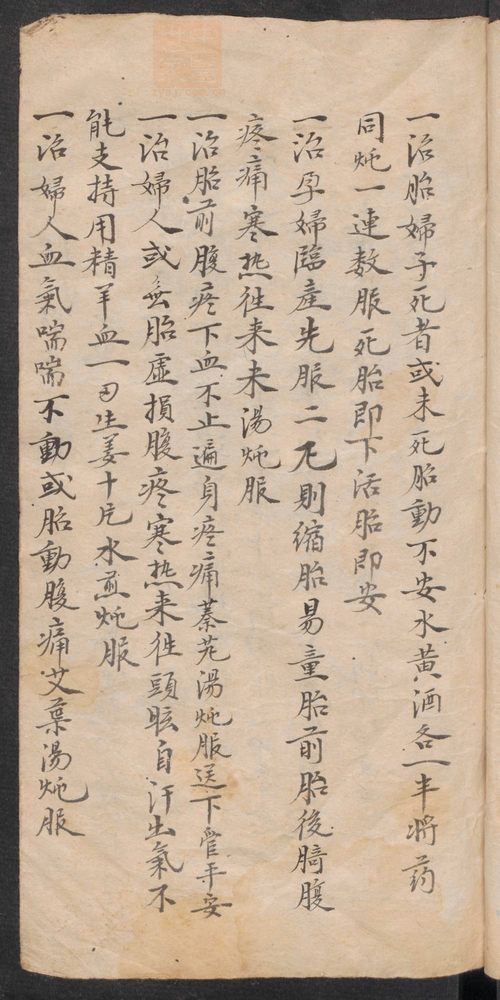 一治胎婦子死者或未死胎動不安水黄酒各一半將药
同炖一連数服死胎即下活胎即安
一治孕婦臨產先服二
則縮胎易
胎前胎後臍腹
疼痛寒热往来未湯炖服
一治胎前腹疼下血不止遍身疼痛蓁艽湯炖服送下管平安
一治婦人或無胎虛損腹疼寒热来往頭眩自汗出氣不
能支持用精羊血一
生姜十片水煎炖服
一治婦人血氣喘喘不動或胎動腹痛艾葉湯炖服